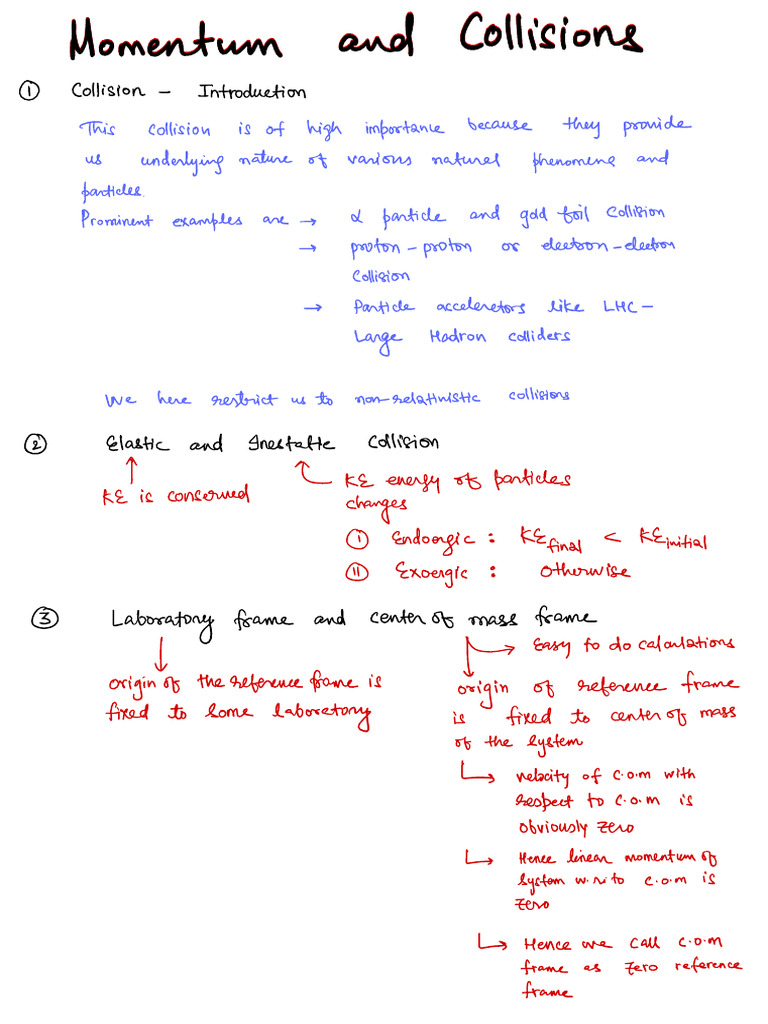 Momentum and Collisions
① Collision - Introduction
This collision is of high importance because they provide
us underlying nature of various natural phenomena and
particles.
Prominent examples are → α particle and gold foil Collision
→ proton-proton or electron-electron
Collision
→ Particle accelerators like LHC-
Large Hadron colliders
We here restrict us to non-relativistic collisions
② Elastic and Inelastic Collision
KE is conserved
KE energy of particles
changes
① Endoergic : KE final < KE initial
⑪ Exoergic : Otherwise
③ Laboratory frame and center of mass frame
→ Easy to do calculations
origin of the reference frame is
fixed to some laboratory
origin of reference frame
is fixed to center of mass
of the system
→ velocity of c.o.m with
respect to c.o.m is
obviously zero
→ Hence linear momentum of
system w.r.to c.o.m is
zero
→ Hence we call c.o.m
frame as zero reference
frame